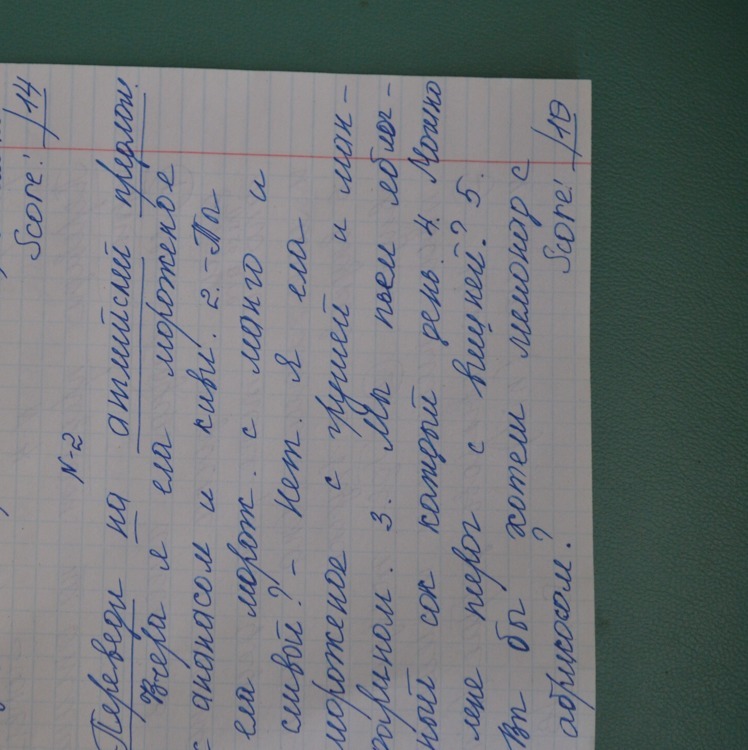 Score: /14
N-2
Переведи на английский предлож.
Вчера я ела мороженое
с ананасом и киви. 2. - Ты
ела морож. с манго и
сливой? - Нет. Я ела
мороженое с грушей и ман-
дарином. 3. Мы пьем яблоч-
ный сок каждый день. 4. Можно
мне пирог с вишней? 5.
Вы бы хотели лимонад с
абрикосом?
Score: /10